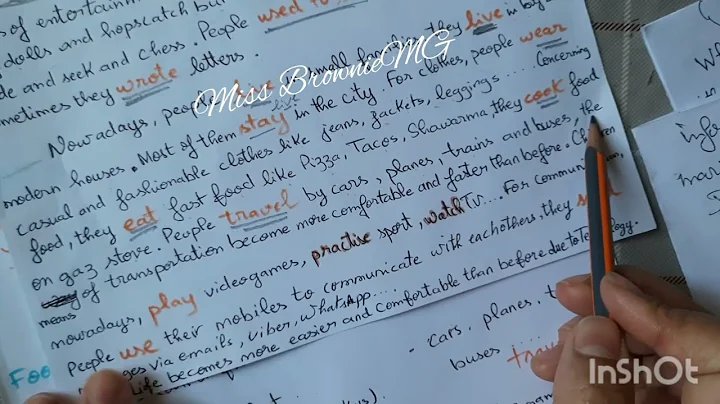 s of entertainm
dolls and hopscatch but
de and seek and Chess. People used to
metimes they wrote letters.
Nowadays, people live in small families, they live in big
modern houses. Most of them stay in the city. For clothes, people wear
casual and fashionable clothes like jeans, jackets, leggings.... Concerning
food, they eat fast food like Pizza, Tacos, Shawarma, they cook food
on gaz stove. People travel by cars, planes, trains and buses, the
means of transportation become more comfortable and faster than before. Children
nowadays, play videogames, practise sport, watch TV.... For communication,
People use their mobiles to communicate with eachothers, they send
via emails, viber, whatsApp....
life becomes more easier and comfortable than before due to Technology.
Foo
- cars, planes, t
buses trav
Miss BrownieMG
InShOt